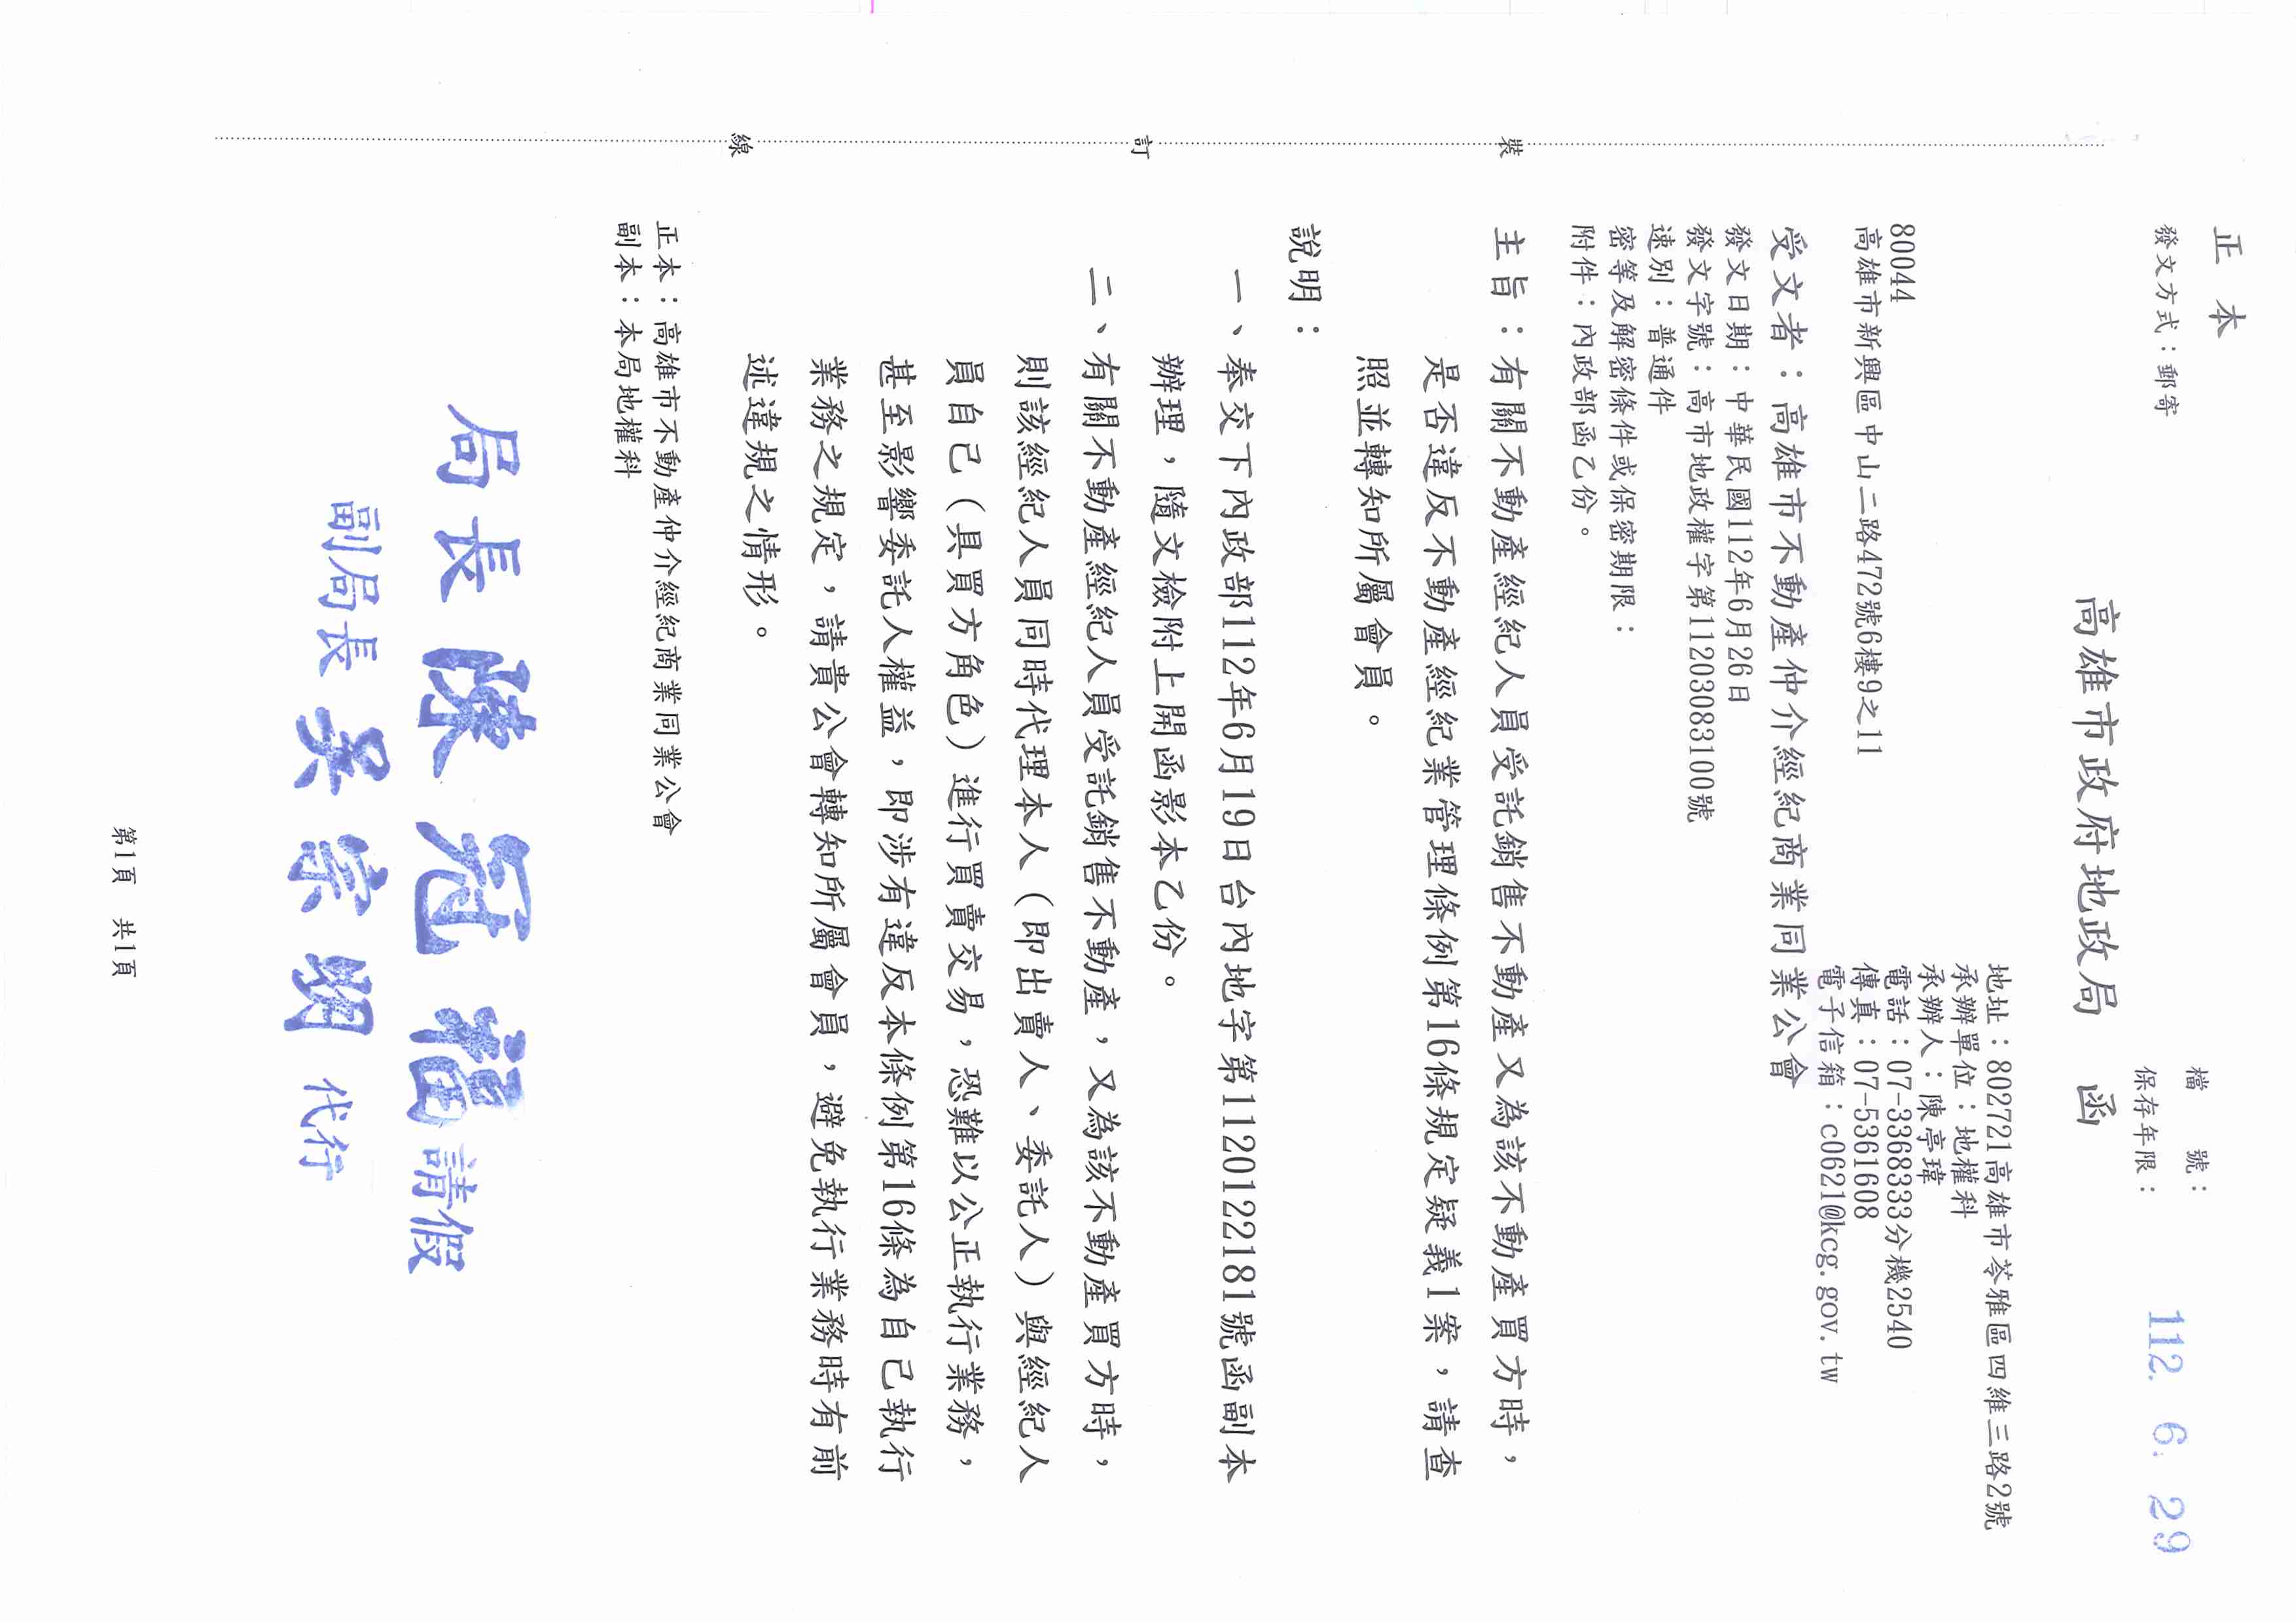 正 本
發文方式：郵寄
檔　　號：
保存年限：
112. 6. 29
高雄市政府地政局　函
地址：802721高雄市苓雅區四維三路2號
承辦單位：地權科
承辦人：陳亭瑋
電話：07-3368333分機2540
傳真：07-5361608
電子信箱：c0621@kcg.gov.tw
80044
高雄市新興區中山二路472號6樓9之11
受文者：高雄市不動產仲介經紀商業同業公會
發文日期：中華民國112年6月26日
發文字號：高市地政權字第11203083100號
速別：普通件
密等及解密條件或保密期限：
附件：內政部函乙份。
主旨：有關不動產經紀人員受託銷售不動產又為該不動產買方時，
是否違反不動產經紀業管理條例第16條規定疑義1案，請查
照並轉知所屬會員。
說明：
一、奉交下內政部112年6月19日台內地字第1120122181號函副本
辦理，隨文檢附上開函影本乙份。
二、有關不動產經紀人員受託銷售不動產，又為該不動產買方時，
則該經紀人員同時代理本人（即出賣人、委託人）與經紀人
員自己（具買方角色）進行買賣交易，恐難以公正執行業務，
甚至影響委託人權益，即涉有違反本條例第16條為自己執行
業務之規定，請貴公會轉知所屬會員，避免執行業務時有前
述違規之情形。
正本：高雄市不動產仲介經紀商業同業公會
副本：本局地權科
局長 陳冠福 請假
副局長 吳宗明 代行
裝
訂
線
第1頁　共1頁